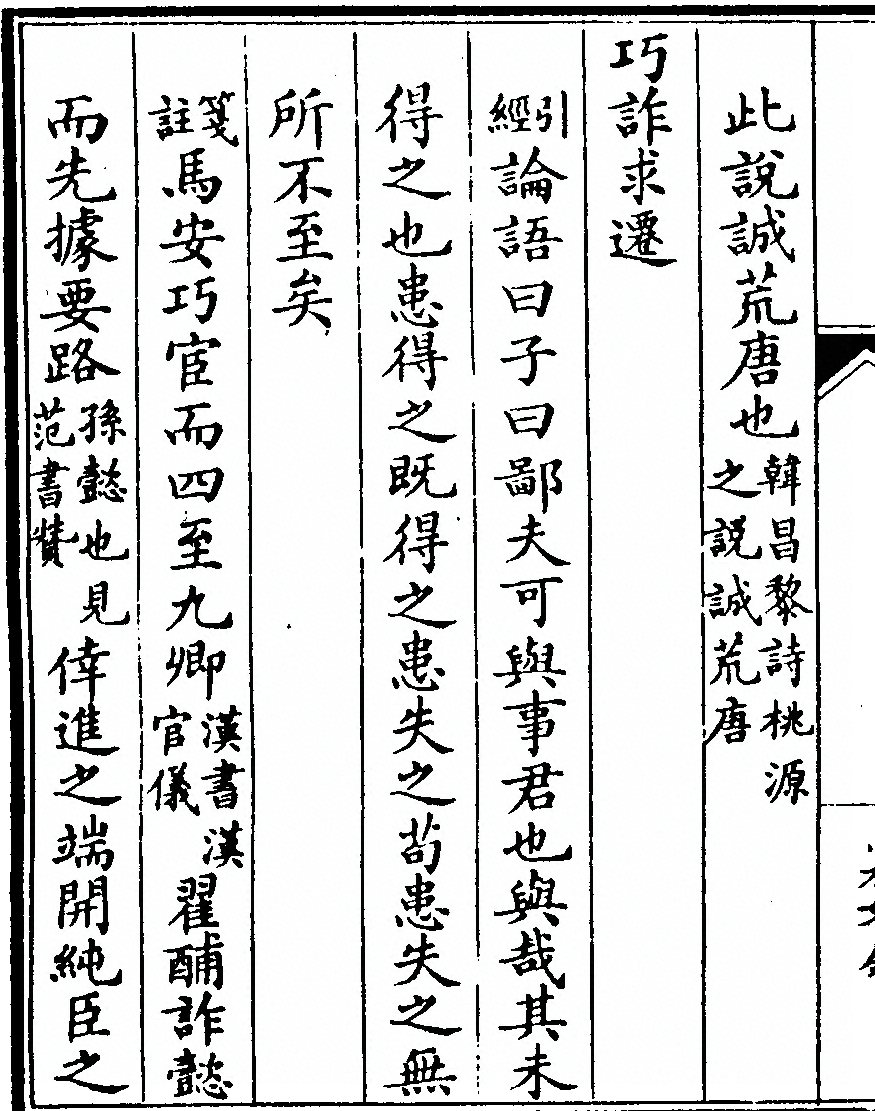 此說誠荒唐也韓昌黎詩桃源之説誠荒唐
巧詐求遷
引經論語曰子曰鄙夫可與事君也與哉其未
得之也患得之既得之患失之苟患失之無
所不至矣
箋註馬安巧宦而四至九卿漢書漢官儀翟酺詐懿
而先據要路孫懿也見范書贊倖進之端開純臣之